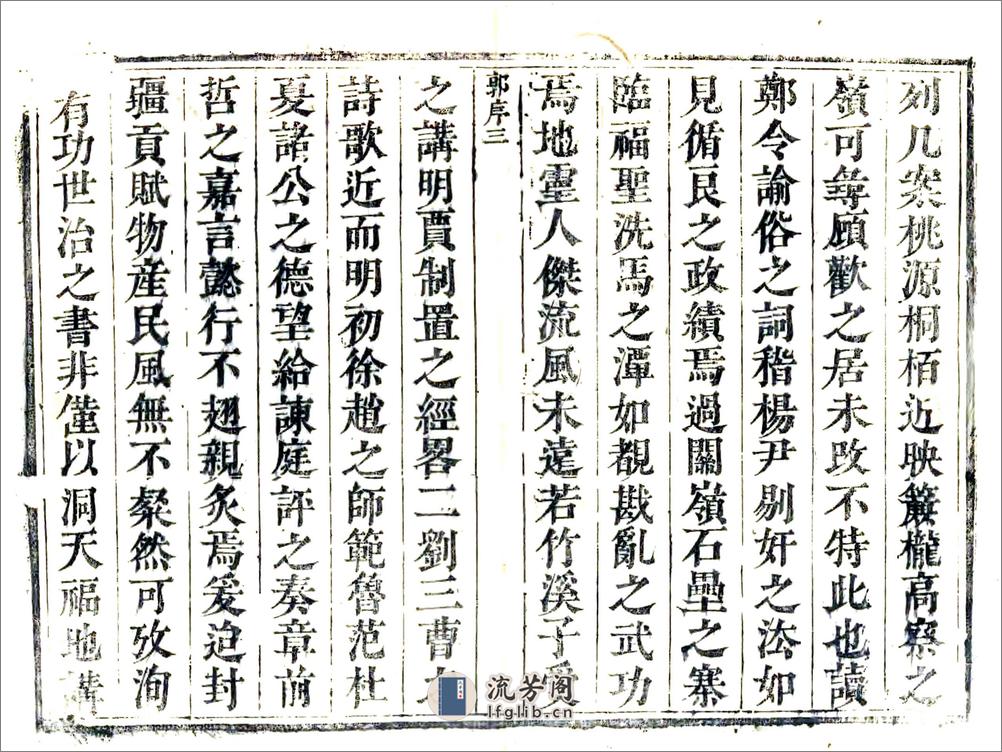 列几案桃源桐栢近映簾櫳高察之
嶺可尋顧歡之居未改不特此也讀
鄭令諭俗之詞稽楊尹剔奸之法如
見循良之政績焉過關嶺石壘之寨
臨福聖洗馬之潭如覩戡亂之武功
焉地靈人傑流風未遠若竹溪子
郭序三
之講明賈制置之經畧二劉三曹
詩歌近而明初徐趙之師範魯范杜
夏諸公之德望給諫庭評之奏章前
哲之嘉言懿行不翅親炙焉爰迨封
疆貢賦物産民風無不粲然可攷洵
有功世治之書非僅以洞天福地
流芳阁
lfglib.cn